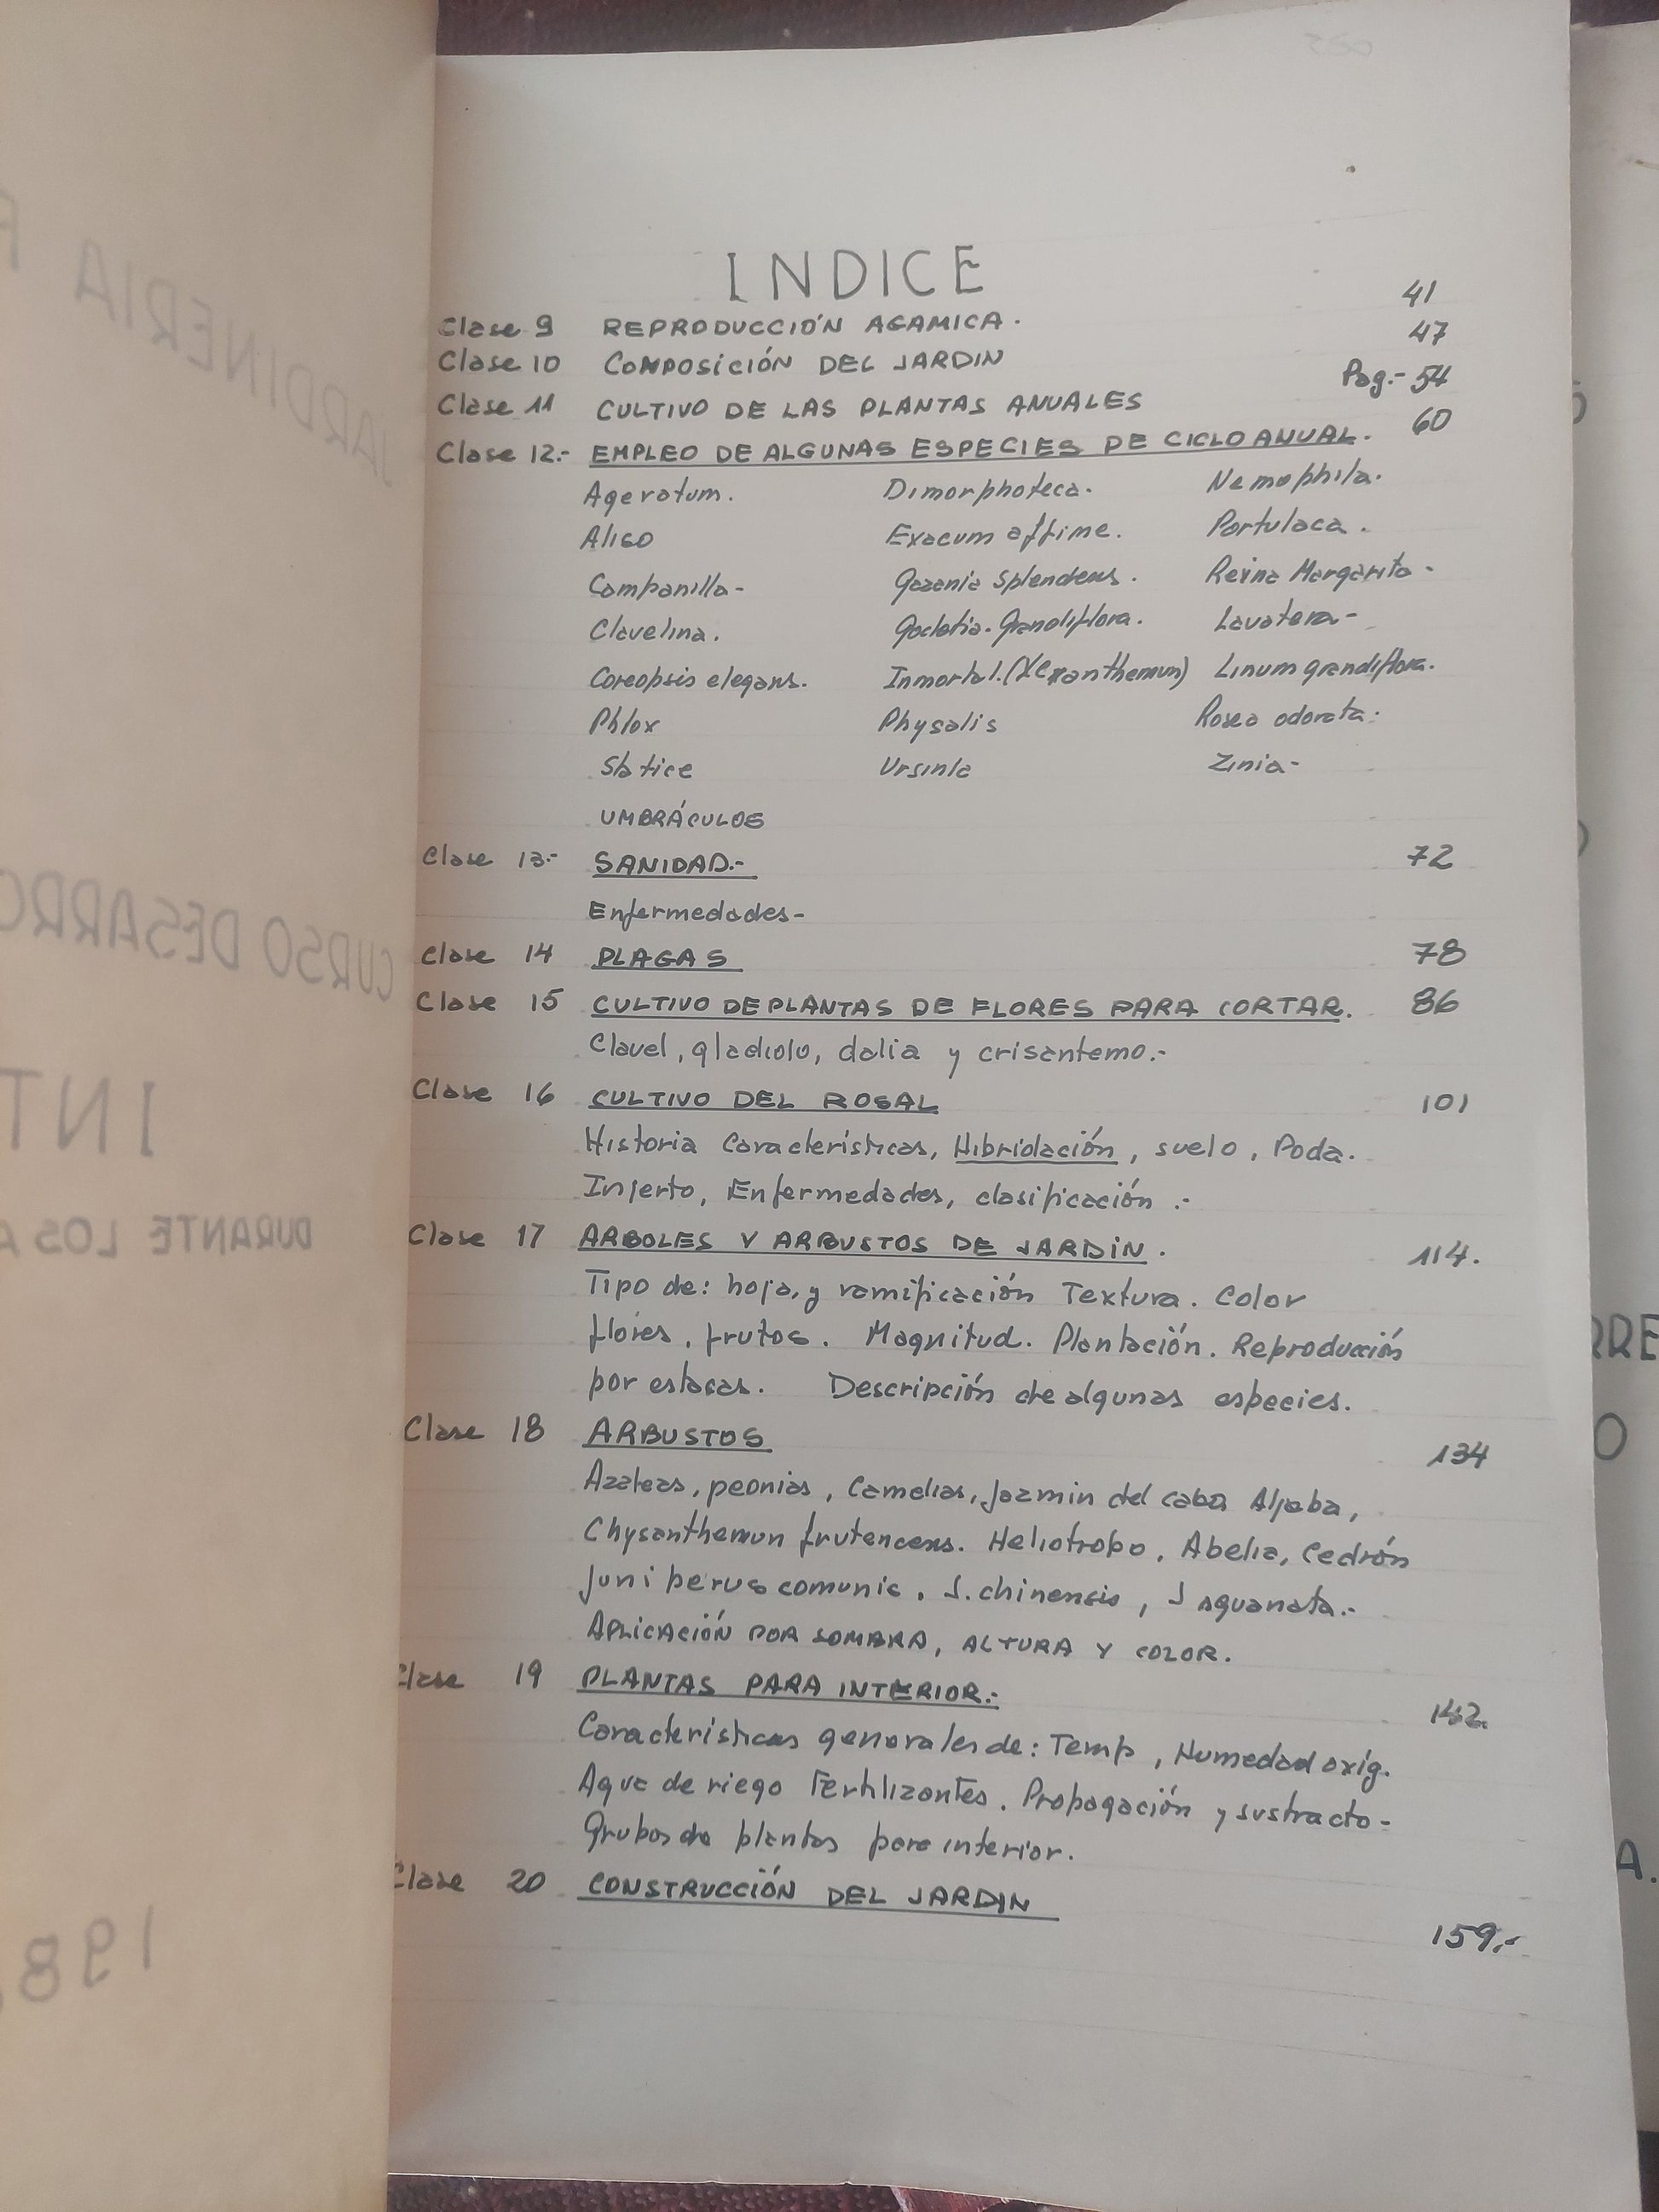 INDICE
Clase 9 REPRODUCCIÓN AGAMICA. 41
Clase 10 COMPOSICIÓN DEL JARDIN 47
Clase 11 CULTIVO DE LAS PLANTAS ANUALES Pag.- 54
Clase 12.- EMPLEO DE ALGUNAS ESPECIES DE CICLO ANUAL. 60
Ageratum. Dimorphoteca. Nemophila.
Aliso Exacum affime. Portulaca.
Campanilla- Gazania Splendens. Reina Margarita-
Clavelina. Godetia. Grandiflora. Lavatera-
Coreopsis elegans. Inmortal. (Xeranthemun) Linum grandiflora.
Phlox Physalis odorata.
Statice Ursinia Zinia-
UMBRÁCULOS
Clase 13.- SANIDAD.- 72
Enfermedades-
Clase 14 PLAGAS 78
Clase 15 CULTIVO DE PLANTAS DE FLORES PARA CORTAR. 86
Clavel, gladiolo, dalia y crisantemo.-
Clase 16 CULTIVO DEL ROSAL 101
Historia Características, Hibridación, suelo, Poda.
Injerto, Enfermedades, clasificación.-
Clase 17 ARBOLES Y ARBUSTOS DE JARDIN. 114.
Tipo de: hoja, y ramificación Textura. Color
flores, frutos. Magnitud. Plantación. Reproducción
por estacas. Descripción de algunas especies.
Clase 18 ARBUSTOS 134
Azaleas, peonias, Camelias, Jazmin del cabo Aljaba,
Chysanthemun frutencens. Heliotropo, Abelia, Cedrón
Juniperus comunis. J. chinensis, J
APLICACIÓN POR SOMBRA, ALTURA Y COLOR.
Clase 19 PLANTAS PARA INTERIOR.- 142.
Características generales de: Temp, Humedad oxíg.
Agua de riego Fertilizantes. Propagación y sustracto-
Grupos de plantas para interior.
Clase 20 CONSTRUCCIÓN DEL JARDIN 159.-
JARDINERIA
CURSO DESARRO
INT
DURANTE LOS A
198